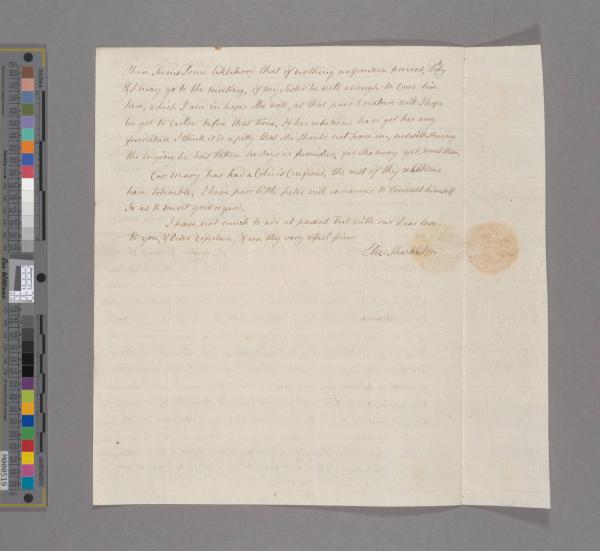 There seems some liklihood that if nothing unforeseen prevent, Deby
& I may go to the meeting, if my sister be well enough to come live
here, which I am in hopes she will, as that poor Creature will I hope
be got to Carlow before that time. If his relations have got her any
furniture I think it is a pitty that she should not have em, notwithstanding
the lodgings he has taken he says is furnished, for she may yet want them,
Cos: Mary has had a Cold is Confined, the rest of thy relations
here tolerable. I hope poor little peter will endeavour to Conduct himself
So as to merit your regard.
I have not much to add at present but with our Dear love
to you, & am thy very affect frind
Eliz: Shackleton
inches
centimeters
Don Williams
M000519